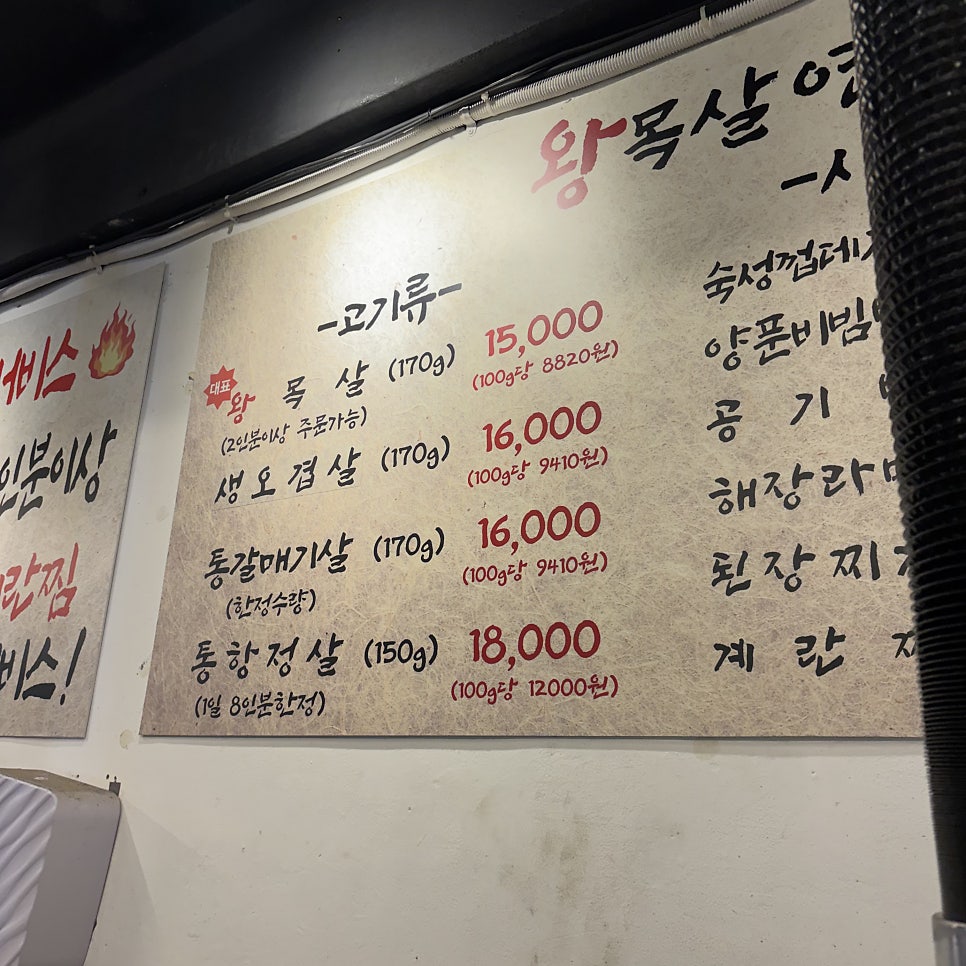 인분이상
왕목살
-고기류-
대표
왕목살 (170g) 15,000
(2인분이상 주문가능) (100g당 8820원)
생오겹살 (170g) 16,000
(100g당 9410원)
통갈매기살 (170g) 16,000
(한정수량) (100g당 9410원)
통항정살 (150g) 18,000
(1일 8인분한정) (100g당 12000원)
숙성껍데
양푼비빔
공기
해장라
된장찌
계란